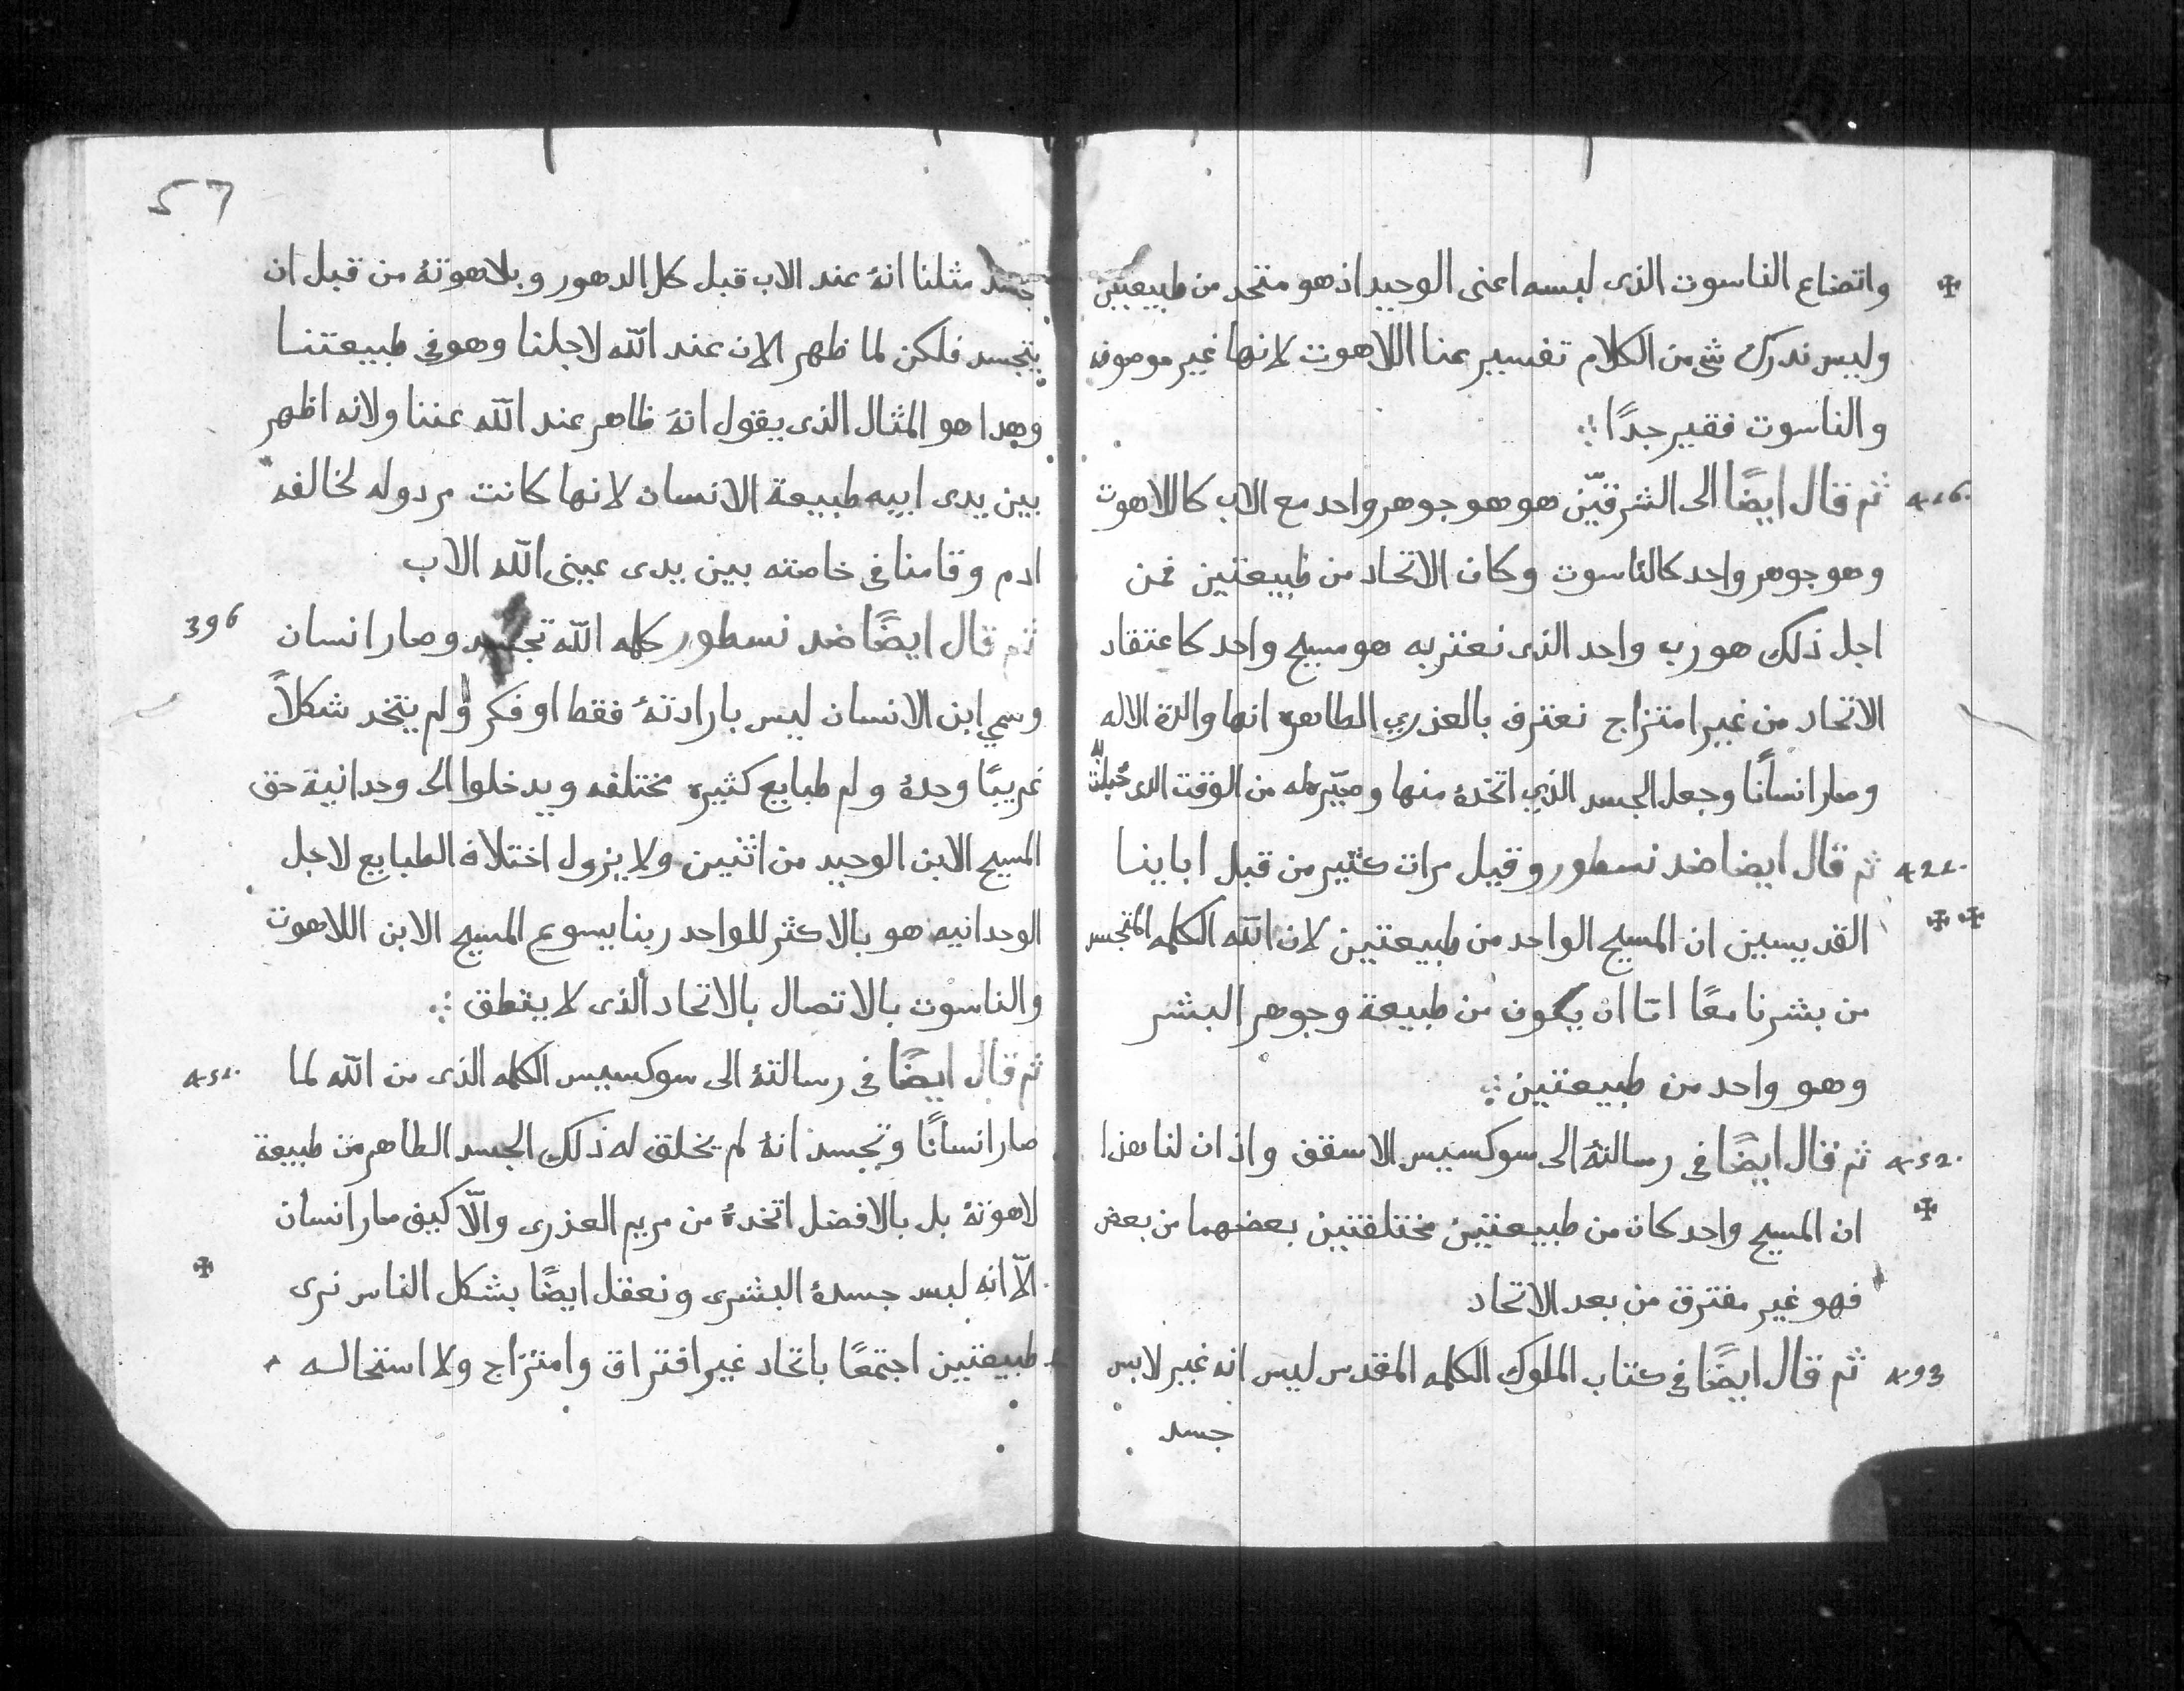 واتضاع الناسوت الذى لبسه اعنى الوحيد اذ هو متحد من طبيعتين
وليس ندرك شى من الكلام تفسير عنا اللاهوت لانها غير موصوفه
والناسوت فقير جدًا
416. ثم قال ايضًا الى الشرقيّن هو هو جوهر واحد مع الاب كاللاهوت
وهو جوهر واحد كالناسوت وكان الاتحاد من طبيعتين فمن
اجل ذلك هو رب واحد الذى نعترف به هو مسيح واحد كاعتقاد
الاتحاد من غير امتزاج نعترف بالعذري الطاهره انها والدة الاله
وصار انسانًا وجعل الجسد الذي اتخدهٔ منها وصيّر له من الوقت الدى حُبلت به
421. ثم قال ايضا ضد نسطور وقيل مرات كثير من قبل اباينا
القديسين ان المسيح الواحد من طبيعتين لان الله الكلمه المتجسد
من بشرنا معًا امّا ان يكون من طبيعة وجوهر البشر
وهو واحد من طبيعتين
452. ثم قال ايضًا فى رسالتهٔ الى سوكسيس الاسقف واذ ان لنا هذا
ان المسيح واحد كان من طبيعتين مختلفتين بعضهما من بعض
فهو غير مفترق من بعد الاتحاد
493 ثم قال ايضًا فى كتاب الملوك الكلمه المقدس ليس انه غير لابس
جسد
57
جسد مثلنا انهٔ عند الاب قبل كل الدهور وبلاهوتهٔ من قبل ان
يتجسد فلكن لما ظهر الان عند الله لاجلنا وهو فى طبيعتنا
وهدا هو المثال الذى يقول انهٔ ظاهر عند الله عننا ولانه اظهر
بين يدى ابيه طبيعة الانسان لانها كانت مردوله لمخالفه
ادم وقامنا فى خاصته بين يدى عينى الله الاب
396 ثم قال ايضًا ضد نسطور كلمه الله تجسد وصار انسان
وسمي ابن الانسان ليس بارادتهٔ فقط او فكر ولم يتخد شكلاً
غريبًا وحدهٔ ولم طبايع كثيره مختلفه ويدخلوا الى وحدانية حق
المسيح الابن الوحيد من اثنين ولا يزول اختلاف الطبايع لاجل
الوحدانيه هو بالاكثر للواحد ربنا يسوع المسيح الابن اللاهوت
والناسوت بالاتصال بالاتحاد الذى لا ينطق
451. ثم قال ايضًا فى رسالتهٔ الى سوكسيس الكلمه الذى من الله لما
صار انسانًا وتجسد انهٔ لم يخلق له ذلك الجسد الطاهر من طبيعة
لاهوتهٔ بل بالافضل اتخدهٔ من مريم العذرى والّا كيف صار انسان
الّا انه لبس جسدهٔ البشرى ونعقل ايضًا بشكل الناس نرى
طبيعتين اجتمعًا باتحاد غير افتراق وامتزاج ولا استحاله